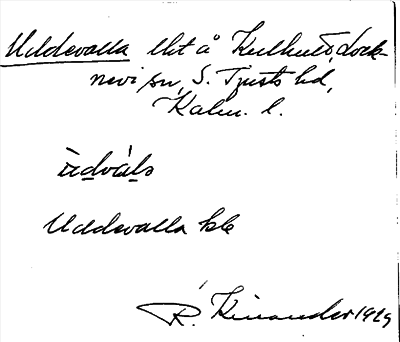 Uddevalla lht å Kulhult, Lock-
nevi sn, S. Tjusts hd,
Kalm. l.
ùdvála
Uddevalla kle
R. Kinander 1929